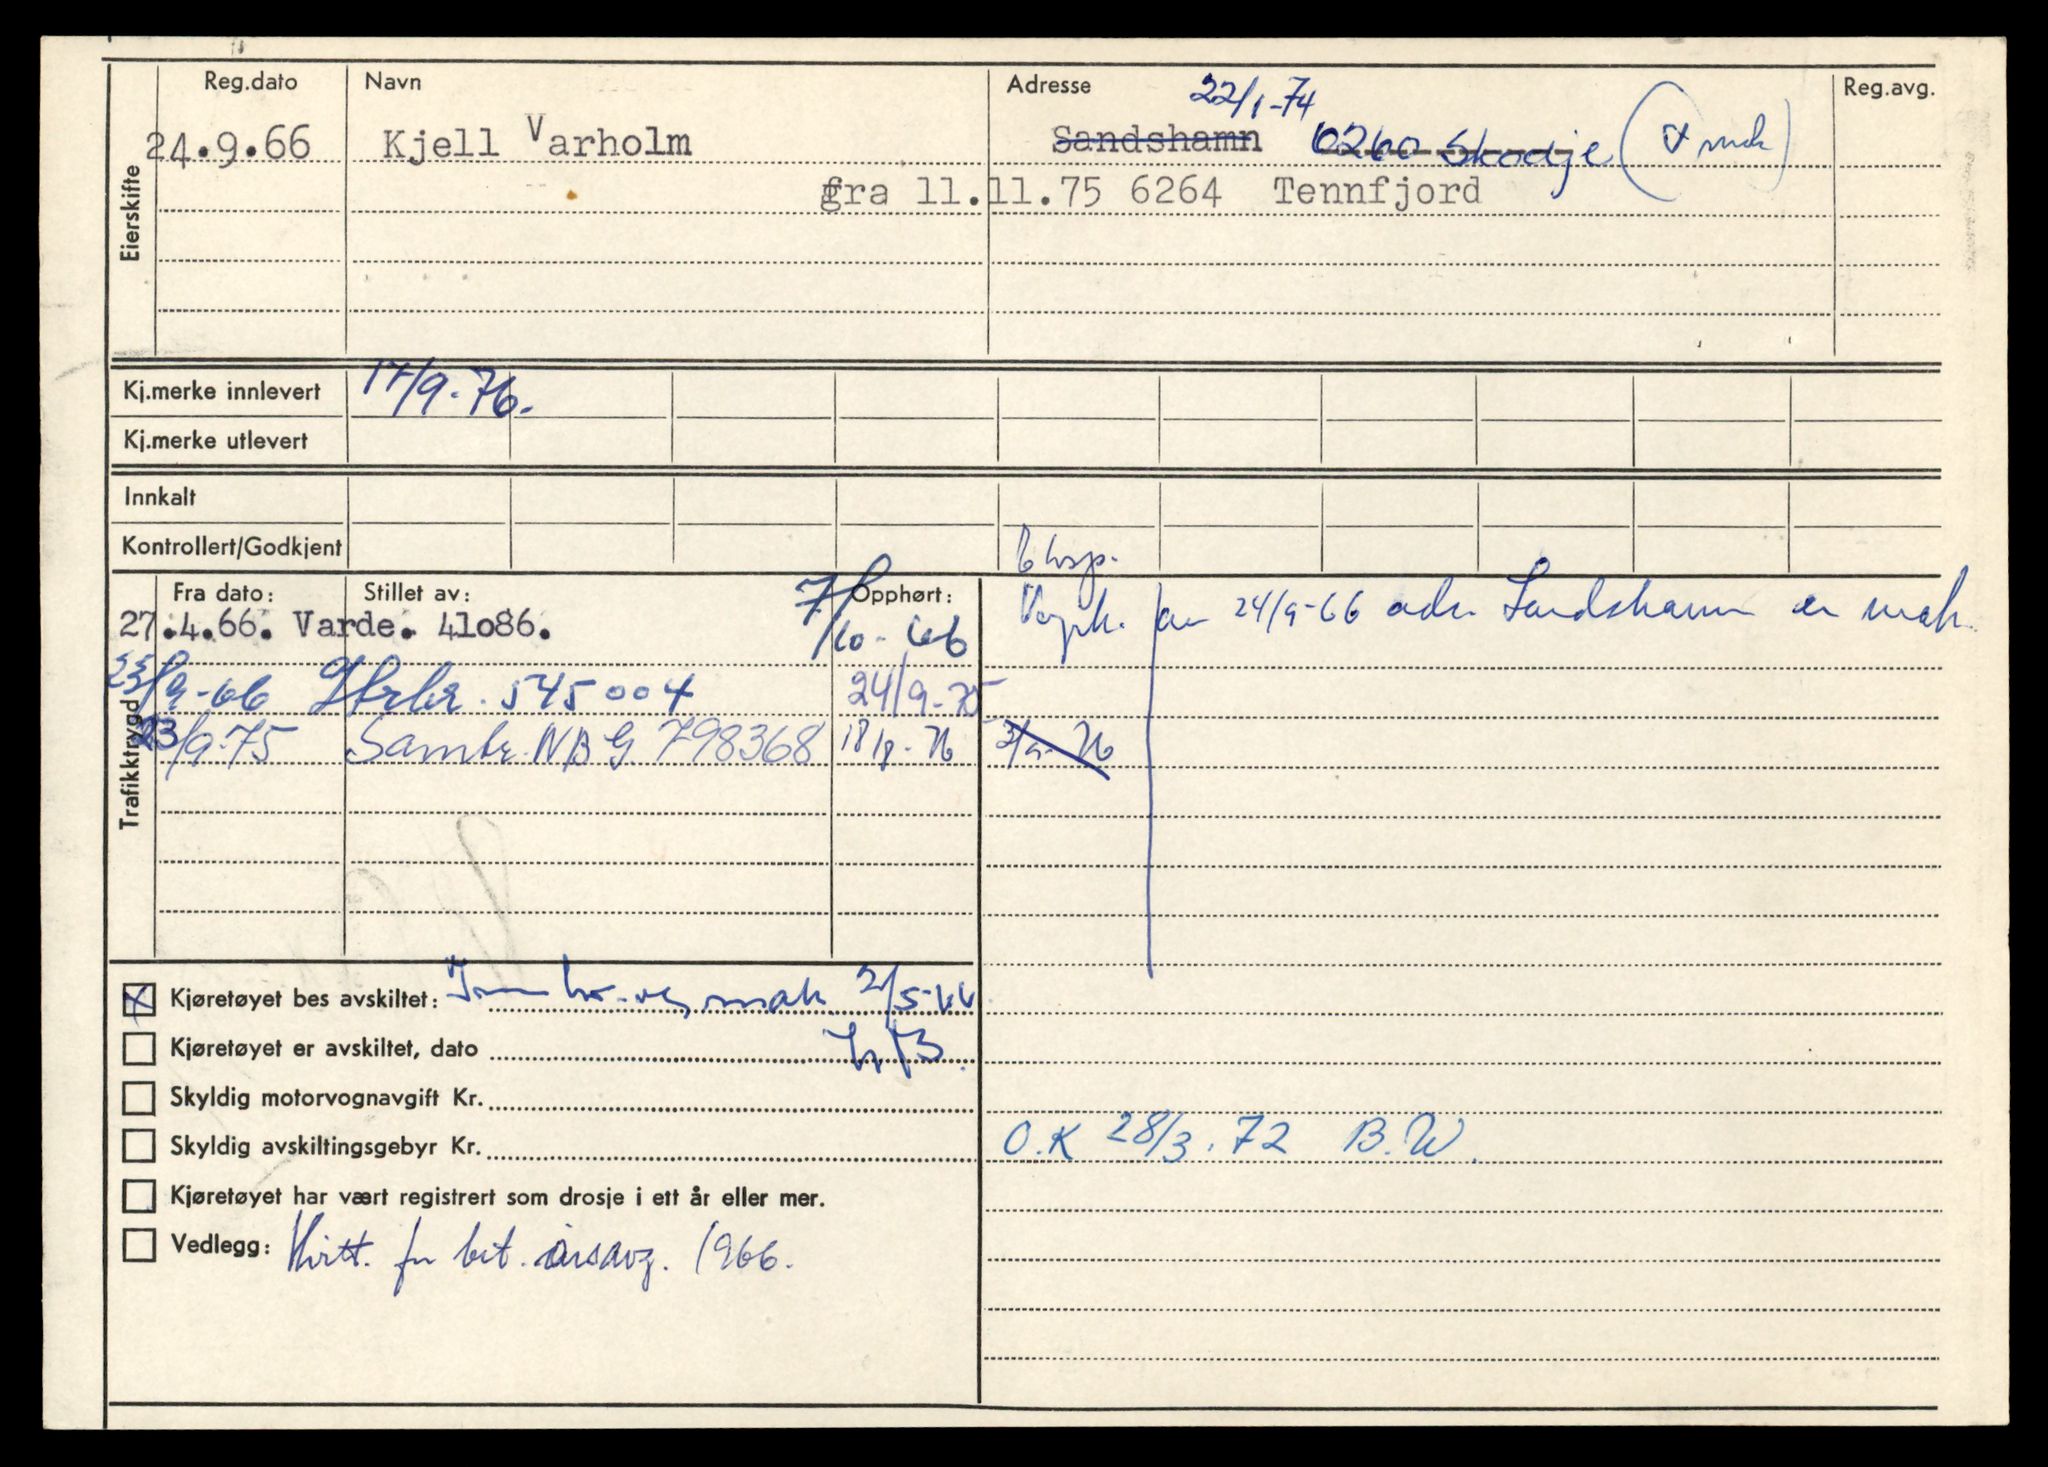 Reg.dato Navn Adresse 22/1-74 Reg.avg.
24.9.66 Kjell Varholm Sandshamn 6260 Skodje (+ mak)
fra 11.11.75 6264 Tennfjord
Eierskifte
Kj.merke innlevert 17/9-76.
Kj.merke utlevert
Innkalt
Kontrollert/Godkjent
Fra dato: Stillet av: Opphørt:
27.4.66. Varde. 41o86. 7/10-66
24/9-66 adr. Sandshamn er mak.
/9-66 545004 24/9-75
23/9-75 Samtr. NBG 798368 18/8-76
Trafikktrygd
Kjøretøyet bes avskiltet: mak 2/5-66
Kjøretøyet er avskiltet, dato
Skyldig motorvognavgift Kr.
Skyldig avskiltingsgebyr Kr. O.K 28/3.72 B.W.
Kjøretøyet har vært registrert som drosje i ett år eller mer.
Vedlegg: Kvitt. for bet. årsavg. 1966.